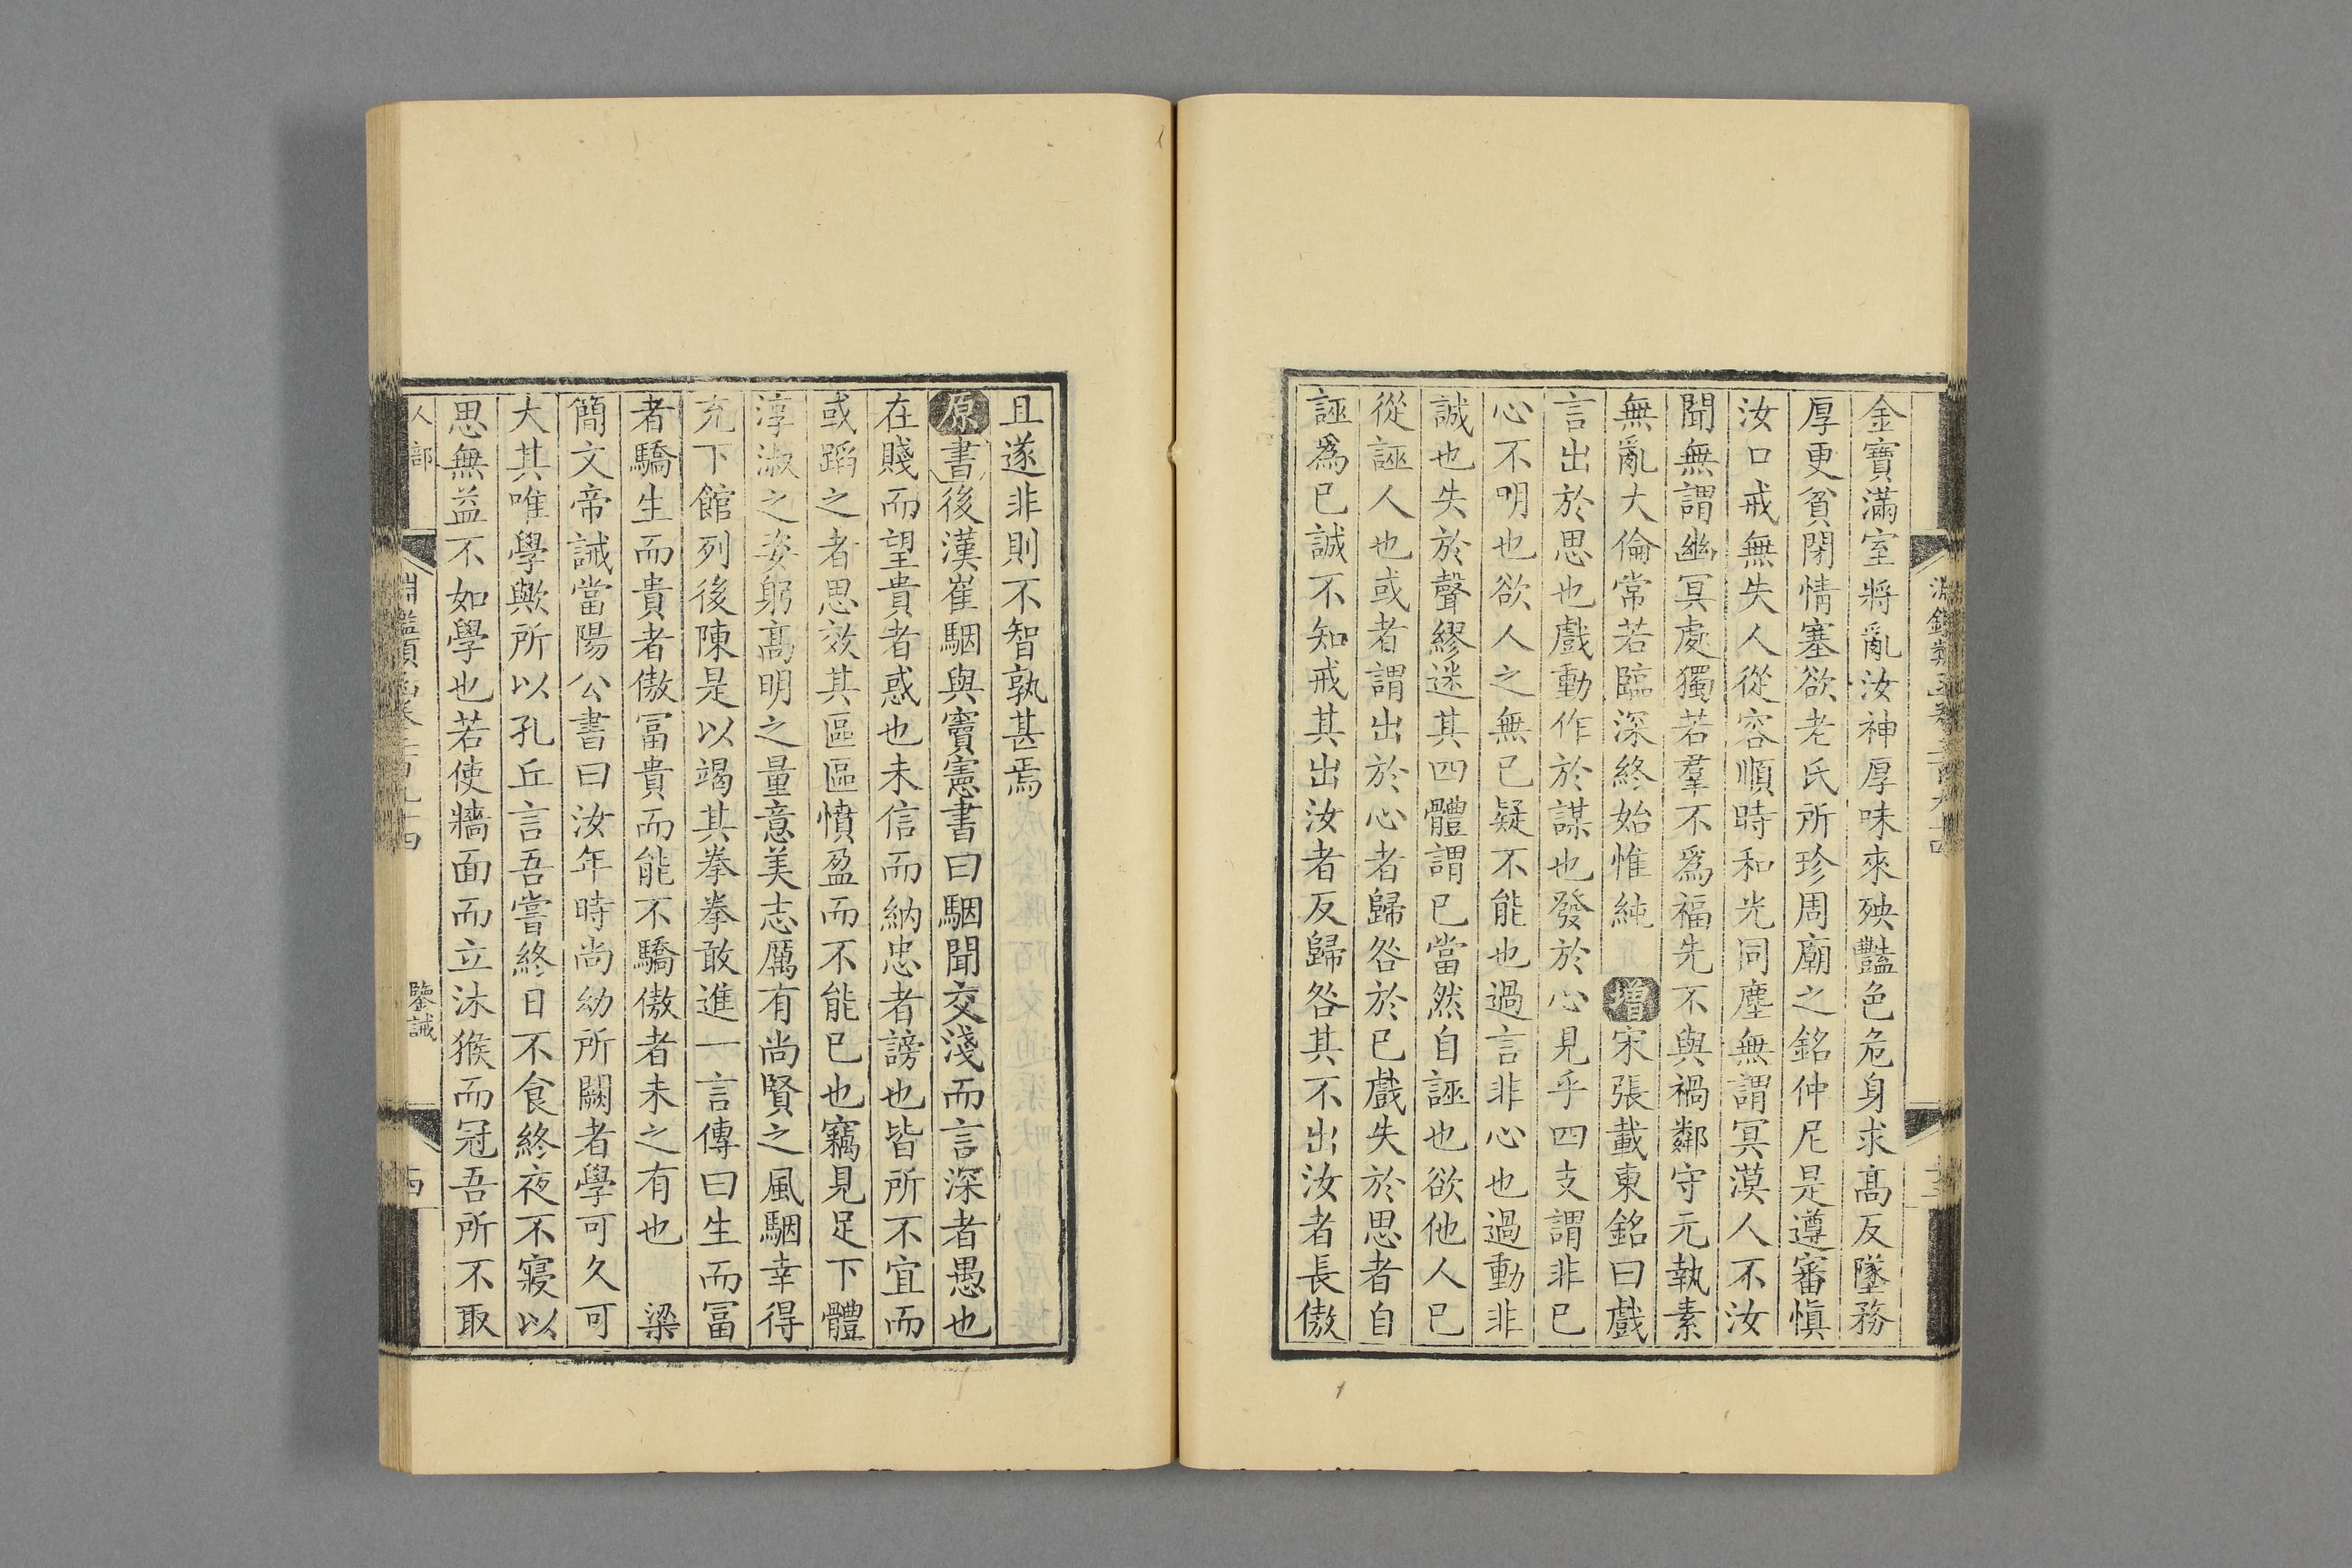 金寶滿室將亂汝神厚味來殃豔色危身求髙反墜務
厚更貧閉情塞欲老氏所珍周廟之銘仲尼是遵審慎
汝口戒無失人從容順時和光同塵無謂冥漠人不汝
聞無謂幽冥處獨若羣不爲福先不與禍鄰守元執素
無亂大倫常若臨深終始惟純 增宋張載東銘曰戲
言出於思也戲動作於謀也發於心見乎四支謂非已
心不明也欲人之無已疑不能也過言非心也過動非
誠也失於聲繆迷其四體謂已當然自誣也欲他人已
從誣人也或者謂出於心者歸咎於已戲失於思者自
誣爲已誠不知戒其出汝者反歸咎其不出汝者長傲
且遂非則不智孰甚焉
原書後漢崔駰與竇憲書曰駰聞交淺而言深者愚也
在賤而望貴者惑也未信而納忠者謗也皆所不宜而
或蹈之者思效其區區憤盈而不能已也竊見足下體
淳淑之姿躬髙明之量意美志厲有尚賢之風駰幸得
充下館列後陳是以竭其拳拳敢進一言傳曰生而冨
者驕生而貴者傲冨貴而能不驕傲者未之有也 梁
簡文帝誡當陽公書曰汝年時尚幼所闕者學可久可
大其唯學歟所以孔丘言吾嘗終日不食終夜不寢以
思無益不如學也若使牆面而立沐猴而冠吾所不取
人部
淵鑑類函卷二百九十四
鑒誡
十四